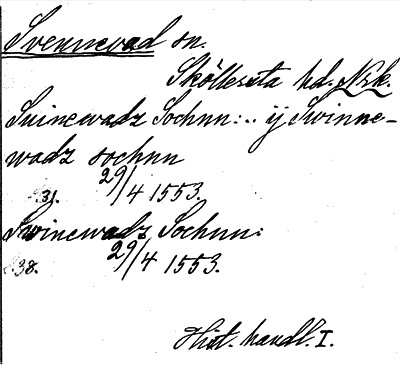 Svennevad sn.
Sköllersta hd. Nrk.
Suinewadz Sochnn: .. ij Swinne-
wadz sochnn
s. 31. 29/4 1553.
Swinewadz Sochnn:
s. 38. 29/4 1553.
Hist. handl. I.